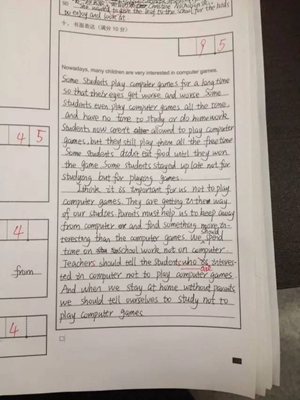 to enjoy and look at.
十、书面表达 (满分 10 分)
9 5
Nowadays, many children are very interested in computer games.
Some students play computer games for a long time
so that their eyes get worse and worse. Some
students even play computer games all the time
and have no time to study or do homework.
Students now aren't allowed to play computer
games, but they still play them all the free time.
Some students didn't eat food until they won
the game. Some students stayed up late not for
studying but for playing games.
I think it is important for us not to play
computer games. They are getting in the way
of our studies. Parents must help us to keep away
from computer and find something more in-
teresting than the computer games. We should spend
time on school work not on computer.
Teachers should tell the students who are interes-
ted in computer not to play computer games.
And when we stay at home without parents
we should tell ourselves to study not to
play computer games.
4 5
4
from
4